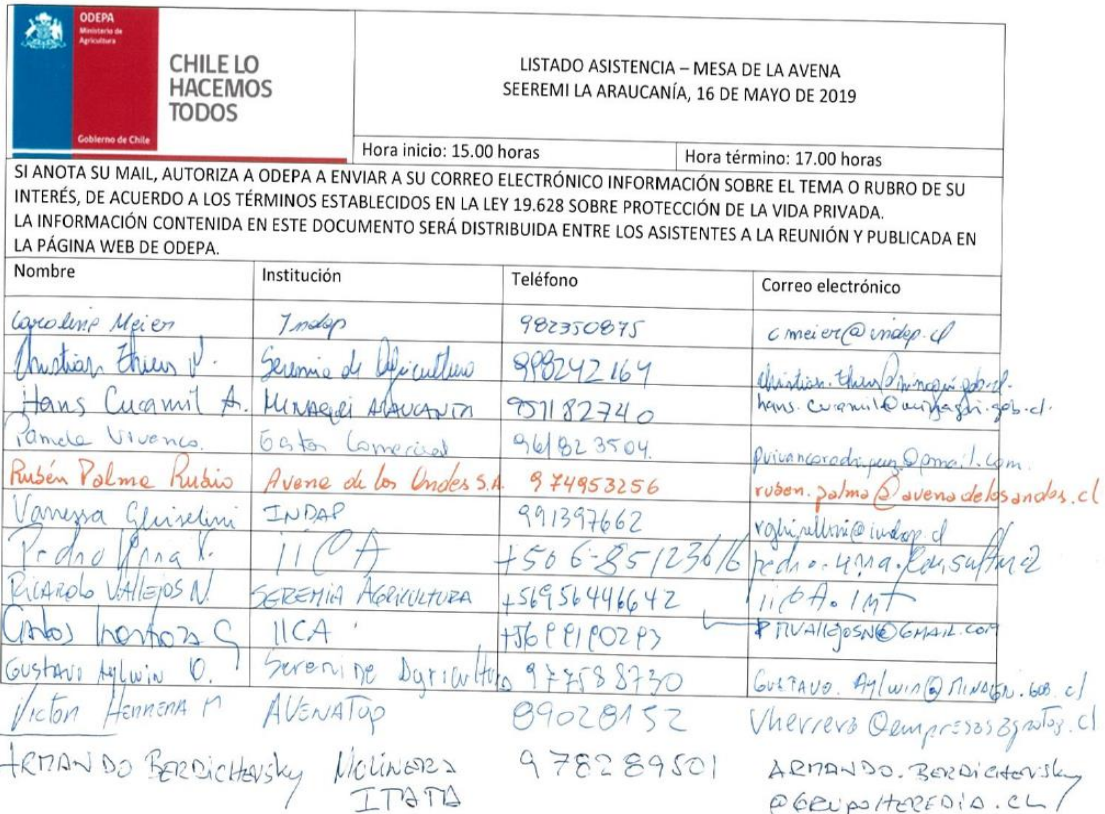 ODEPA
Ministerio de
Agricultura
CHILE LO
HACEMOS
TODOS
Gobierno de Chile
LISTADO ASISTENCIA – MESA DE LA AVENA
SEEREMI LA ARAUCANÍA, 16 DE MAYO DE 2019
Hora inicio: 15.00 horas Hora término: 17.00 horas
SI ANOTA SU MAIL, AUTORIZA A ODEPA A ENVIAR A SU CORREO ELECTRÓNICO INFORMACIÓN SOBRE EL TEMA O RUBRO DE SU
INTERÉS, DE ACUERDO A LOS TÉRMINOS ESTABLECIDOS EN LA LEY 19.628 SOBRE PROTECCIÓN DE LA VIDA PRIVADA.
LA INFORMACIÓN CONTENIDA EN ESTE DOCUMENTO SERÁ DISTRIBUIDA ENTRE LOS ASISTENTES A LA REUNIÓN Y PUBLICADA EN
LA PÁGINA WEB DE ODEPA.
Nombre Institución Teléfono Correo electrónico
Caroline Meier Indap 982350875 cmeier@indap.cl
Christian 998242164
Hans Curamil A. MINAGRI ARAUCANIA 951182740 hans.curamil@minagri.gob.cl
Pamela Vivanco Gestor Comercial 961823504
Rubén Palma Rubio Avena de los Andes S.A. 974953256 ruben.palma@avenadelosandes.cl
Vanessa INDAP 991397662
Pedro IICA +506-85123616
RICARDO VALLEJOS N. SEREMIA AGRICULTURA +56956446642 IICA.INT
Carlos IICA +5699190293 RMVALLEJOSN@GMAIL.COM
Gustavo Aylwin O. Seremi de Agricultura 977588730 GUSTAVO.Aylwin@MINAGRI.GOB.cl
Victor HERRERA M AVENATOP 89028152
ARMANDO BERDICHEVSKY MOLINERA 978289501 ARMANDO.BERDICHEVSKY
ITATA @GRUPOHEREDIA.CL